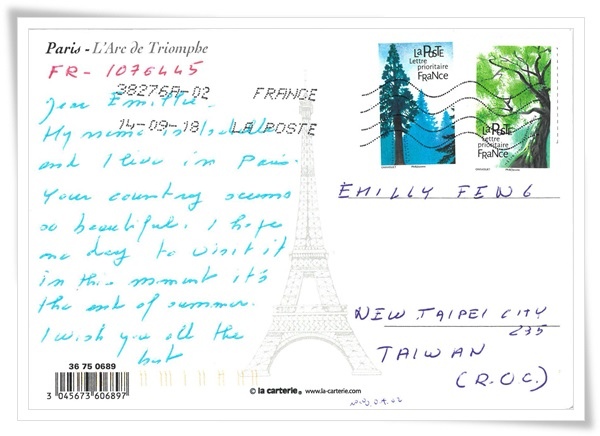 Paris - L'Arc de Triomphe
FR- 1076445
38276A-02 FRANCE
14-09-18 LA POSTE
Dear Emillie.
My name is
and I live in Paris.
Your country seems
so beautiful. I hope
one day to visit it
in this moment it's
the end of summer.
I wish you all the
best
LA POSTE
Lettre
prioritaire
FRANCE
LA POSTE
Lettre
prioritaire
FRANCE
EMILLY FENG
NEW TAIPEI CITY
235
TAIWAN
(R.O.C.)
36 75 0689
3 045673 606897
la carterie® www.la-carterie.com